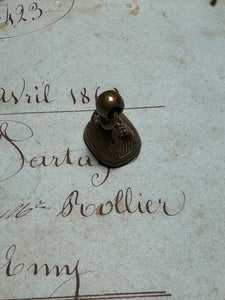 423
avril 18
Partag
Mr Rollier